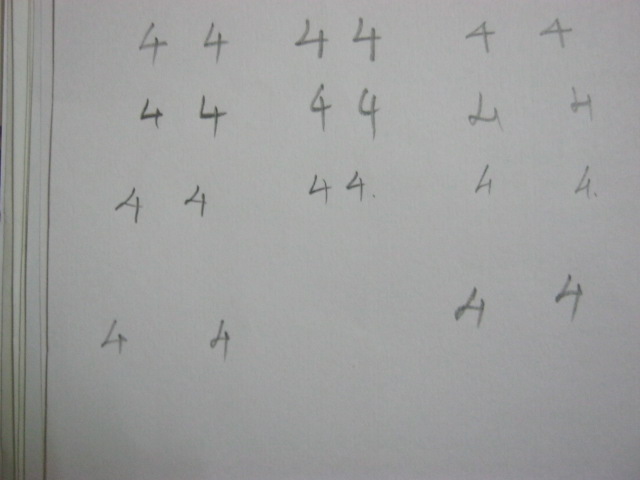 4 4 44 4 4
4 4 44 4 4
4 4 44. 4 4.
4 4
4 4